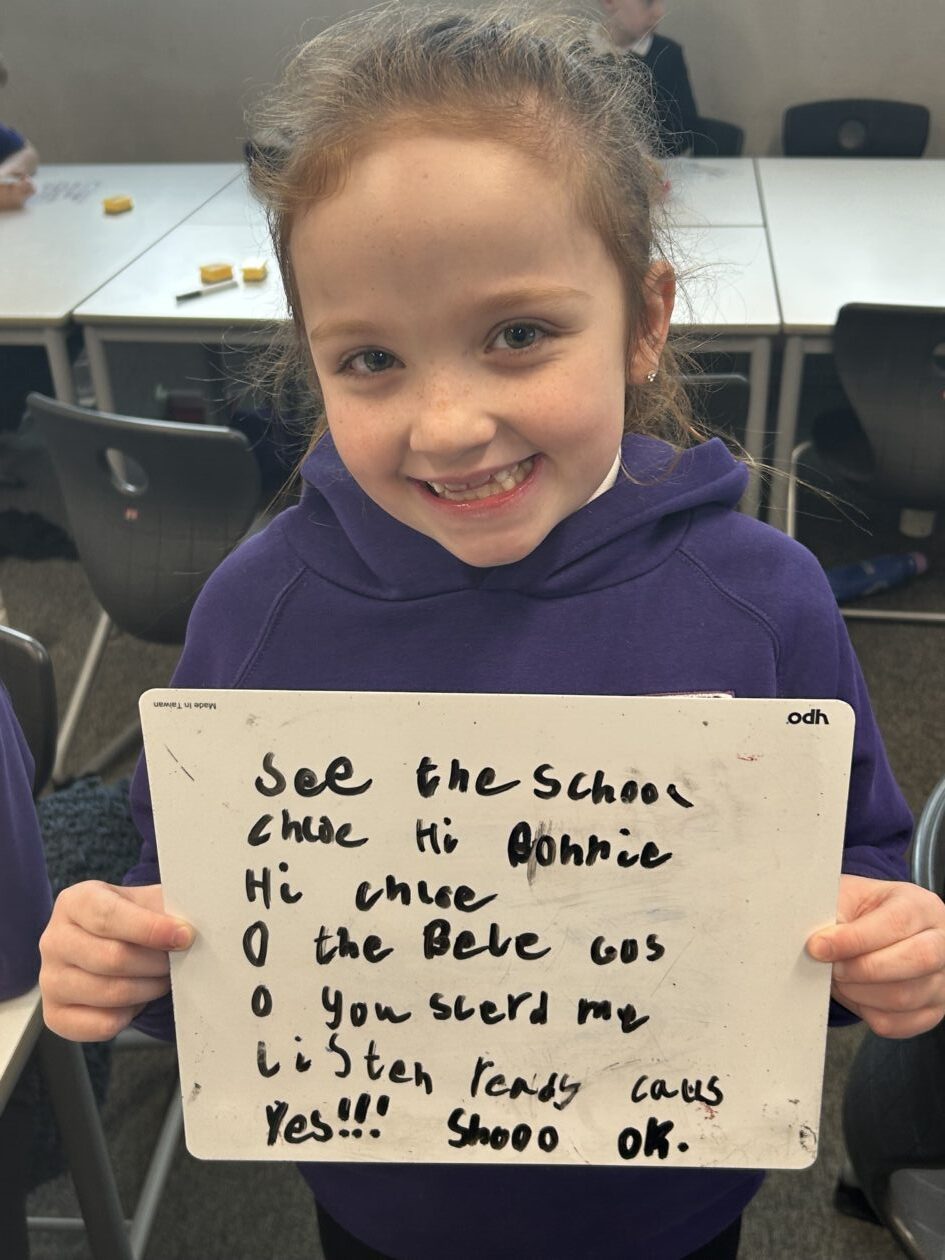 Made in Taiwan
odh
See the School
Chloe Hi Bonnie
Hi Chloe
O the Bele Gos
O you scerd me
Listen ready caus
Yes!!! Shooo OK.